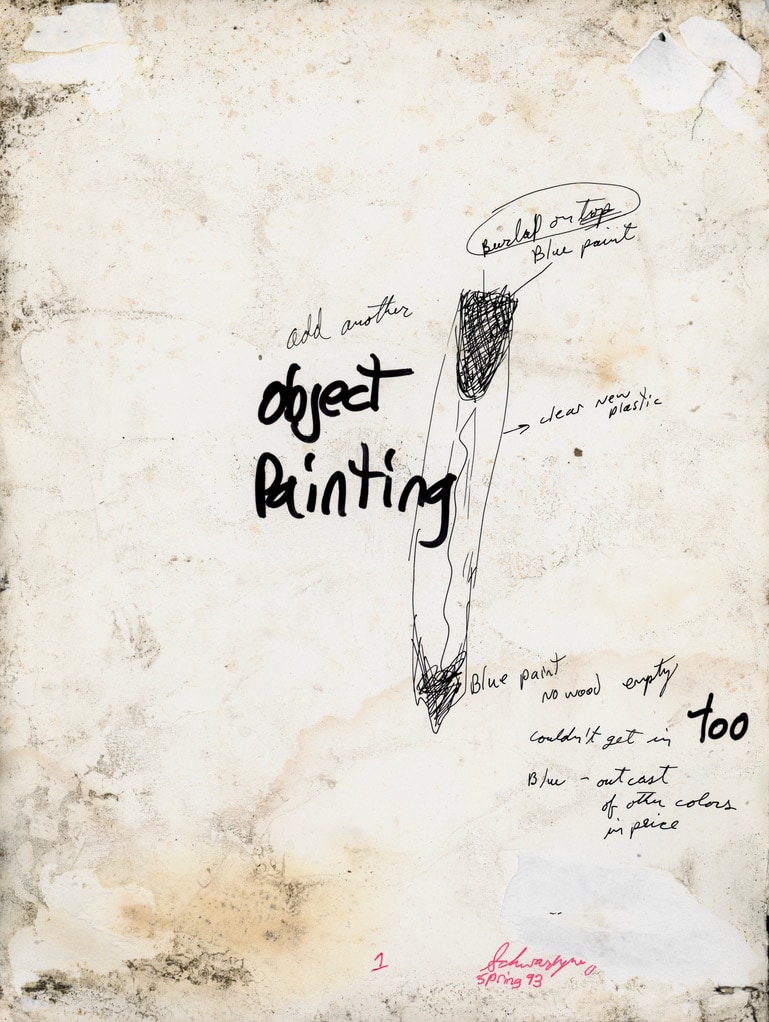 Burlap on top
Blue paint
add another
object
Painting
clear new
plastic
Blue paint
no wood empty
couldn't get in too
Blue - outcast
of other colors
in price
1
Spring 93